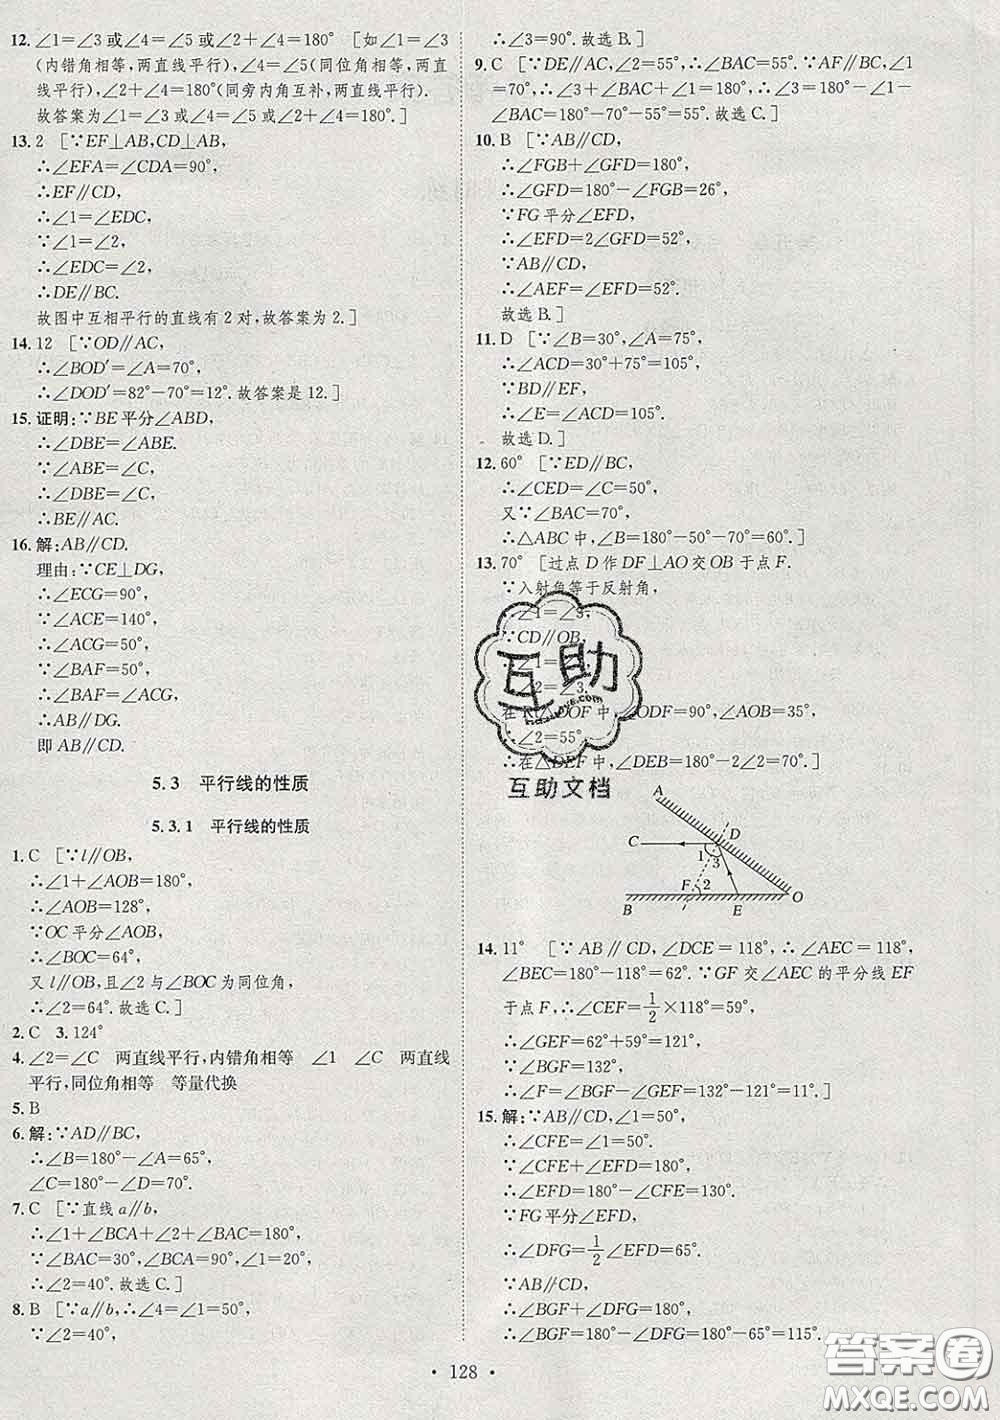 12. ∠1=∠3 或∠4=∠5 或∠2+∠4=180° [如∠1=∠3
(内错角相等,两直线平行),∠4=∠5(同位角相等,两直
线平行),∠2+∠4=180°(同旁内角互补,两直线平行).
故答案为∠1=∠3 或∠4=∠5 或∠2+∠4=180°.]
13. 2 [∵EF⊥AB,CD⊥AB,
∴∠EFA=∠CDA=90°,
∴EF∥CD,
∴∠1=∠EDC,
∵∠1=∠2,
∴∠EDC=∠2,
∴DE∥BC.
故图中互相平行的直线有 2 对,故答案为 2.]
14. 12 [∵OD∥AC,
∴∠BOD′=∠A=70°,
∴∠DOD′=82°-70°=12°.故答案是 12.]
15. 证明:∵BE 平分∠ABD,
∴∠DBE=∠ABE.
∵∠ABE=∠C,
∴∠DBE=∠C,
∴BE∥AC.
16. 解:AB∥CD.
理由:∵CE⊥DG,
∴∠ECG=90°,
∵∠ACE=140°,
∴∠ACG=50°,
∵∠BAF=50°,
∴∠BAF=∠ACG,
∴AB∥DG.
即 AB∥CD.
5.3 平行线的性质
5.3.1 平行线的性质
1. C [∵l∥OB,
∴∠1+∠AOB=180°,
∴∠AOB=128°,
∵OC 平分∠AOB,
∴∠BOC=64°,
又 l∥OB,且∠2 与∠BOC 为同位角,
∴∠2=64°.故选 C.]
2. C 3. 124°
4. ∠2=∠C 两直线平行,内错角相等 ∠1 ∠C 两直线
平行,同位角相等 等量代换
5. B
6. 解:∵AD∥BC,
∴∠B=180°-∠A=65°,
∠C=180°-∠D=70°.
7. C [∵直线 a∥b,
∴∠1+∠BCA+∠2+∠BAC=180°,
∵∠BAC=30°,∠BCA=90°,∠1=20°,
∴∠2=40°.故选 C.]
8. B [∵a∥b,∴∠4=∠1=50°,
∵∠2=40°,
∴∠3=90°.故选 B.]
9. C [∵DE∥AC,∠2=55°,∴∠BAC=∠2=55°.∵AF∥BC,∠1
=70°,∴∠3+∠BAC+∠1=180°.∴∠3=180°-∠1-
∠BAC=180°-70°-55°=55°.故选 C.]
10. B [∵AB∥CD,
∴∠FGB+∠GFD=180°,
∴∠GFD=180°-∠FGB=26°,
∵FG 平分∠EFD,
∴∠EFD=2∠GFD=52°,
∵AB∥CD,
∴∠AEF=∠EFD=52°.
故选 B.]
11. D [∵∠B=30°,∠A=75°,
∴∠ACD=30°+75°=105°,
∵BD∥EF,
∴∠E=∠ACD=105°.
故选 D.]
12. 60° [∵ED∥BC,
∴∠CED=∠C=50°,
又∵∠BAC=70°,
∴△ABC 中,∠B=180°-50°-70°=60°.]
13. 70° [过点 D 作 DF⊥AO 交 OB 于点 F.
∵入射角等于反射角,
∴∠1=∠3,
∵CD∥OB,
∴∠1=∠2,
∴∠2=∠3.
在 Rt△DOF 中,∠ODF=90°,∠AOB=35°,
∴∠2=55°.
∴在△DEF 中,∠DEB=180°-2∠2=70°.]
A
C D
1 3
F 2
B E O
14. 11° [∵AB∥CD,∠DCE=118°,∴∠AEC=118°,
∠BEC=180°-118°=62°.∵GF 交∠AEC 的平分线 EF
于点 F,∴∠CEF=1/2×118°=59°,
∴∠GEF=62°+59°=121°,
∵∠BGF=132°,
∴∠F=∠BGF-∠GEF=132°-121°=11°.]
15. 解:∵AB∥CD,∠1=50°,
∴∠CFE=∠1=50°.
∵∠CFE+∠EFD=180°,
∴∠EFD=180°-∠CFE=130°.
∵FG 平分∠EFD,
∴∠DFG=1/2∠EFD=65°.
∵AB∥CD,
∴∠BGF+∠DFG=180°,
∴∠BGF=180°-∠DFG=180°-65°=115°.
互助
互助文档
• 128 •
答案圈
MXQE.COM